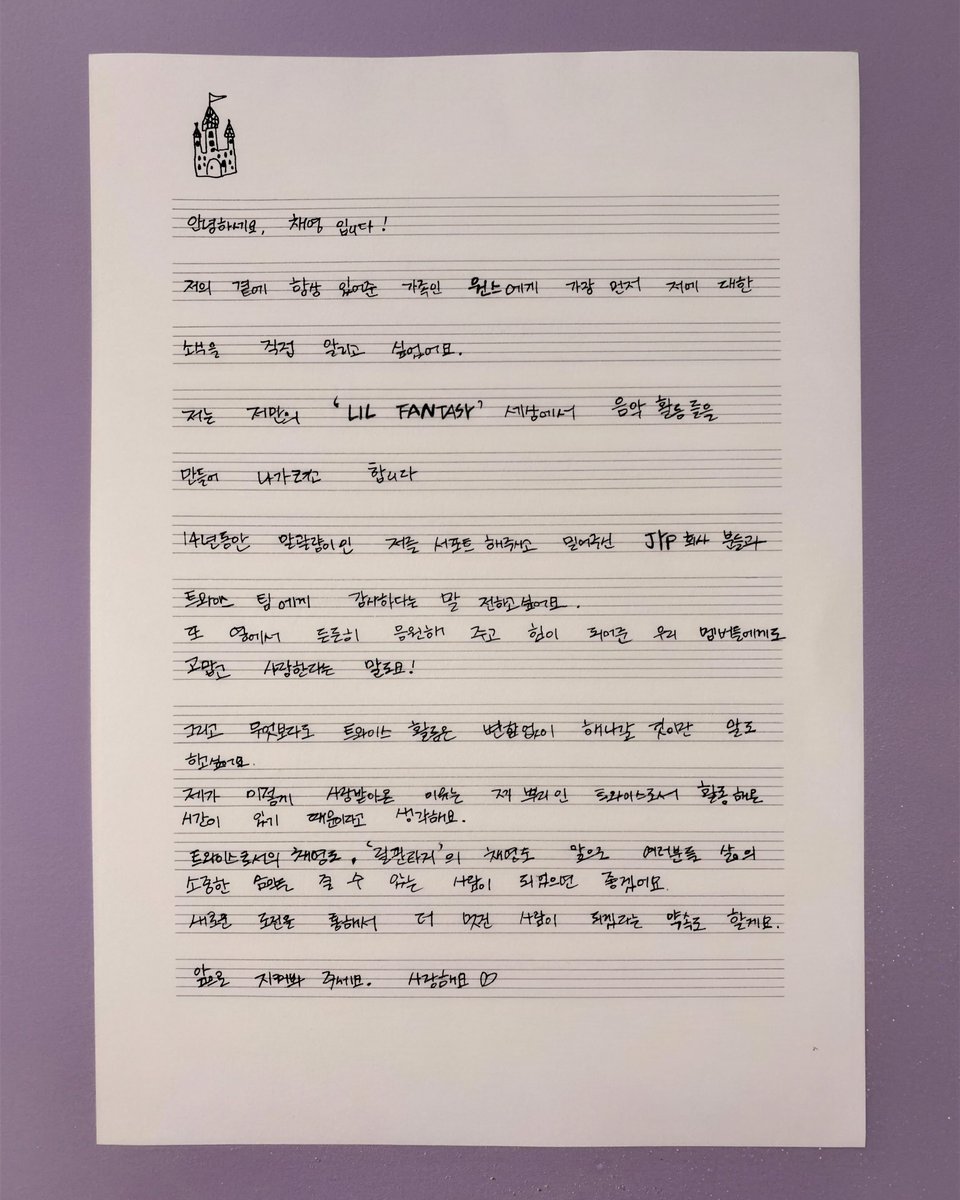 안녕하세요, 채영 입니다!
저의 곁에 항상 있어준 가족인 원스에게 가장 먼저 저에 대한
소식을 직접 알리고 싶었어요.
저는 저만의 'LIL FANTASY' 세상에서 음악 활동들을
만들어 나가려고 합니다
14년동안 말괄량이인 저를 서포트 해주시고 믿어주신 JYP 회사 분들과
트와이스 팀에게 감사하다는 말 전하고싶어요.
또 옆에서 든든히 응원해 주고 힘이 되어준 우리 멤버들에게도
고맙고 사랑한다는 말도요!
그리고 무엇보다도 트와이스 활동은 변함없이 해나갈 것이란 말도
하고싶어요.
제가 이렇게 사랑받아온 이유는 제 뿌리인 트와이스로서 활동해온
시간이 있기 때문이라고 생각해요.
트와이스로서의 채영도, '릴판타지'의 채영도 앞으로 여러분들 삶의
소중한 수 있는 사람이 되었으면 좋겠어요.
새로운 도전을 통해서 더 멋진 사람이 되겠다는 약속도 할게요.
앞으로 지켜봐 주세요. 사랑해요 ♡